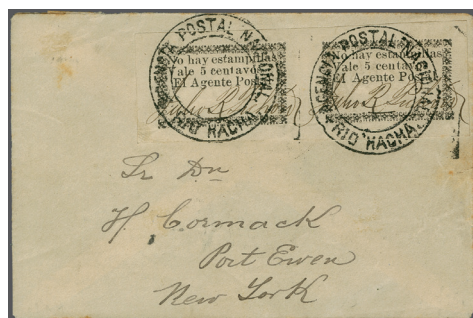 AGENCIA POSTAL NACIONAL
RIO HACHA
No hay estampillas
Vale 5 centavos
El Agente Postal
AGENCIA POSTAL NACIONAL
RIO HACHA
No hay estampillas
Vale 5 centavos
El Agente Postal
Sr Dn
H Cormack
Port Ewen
New York